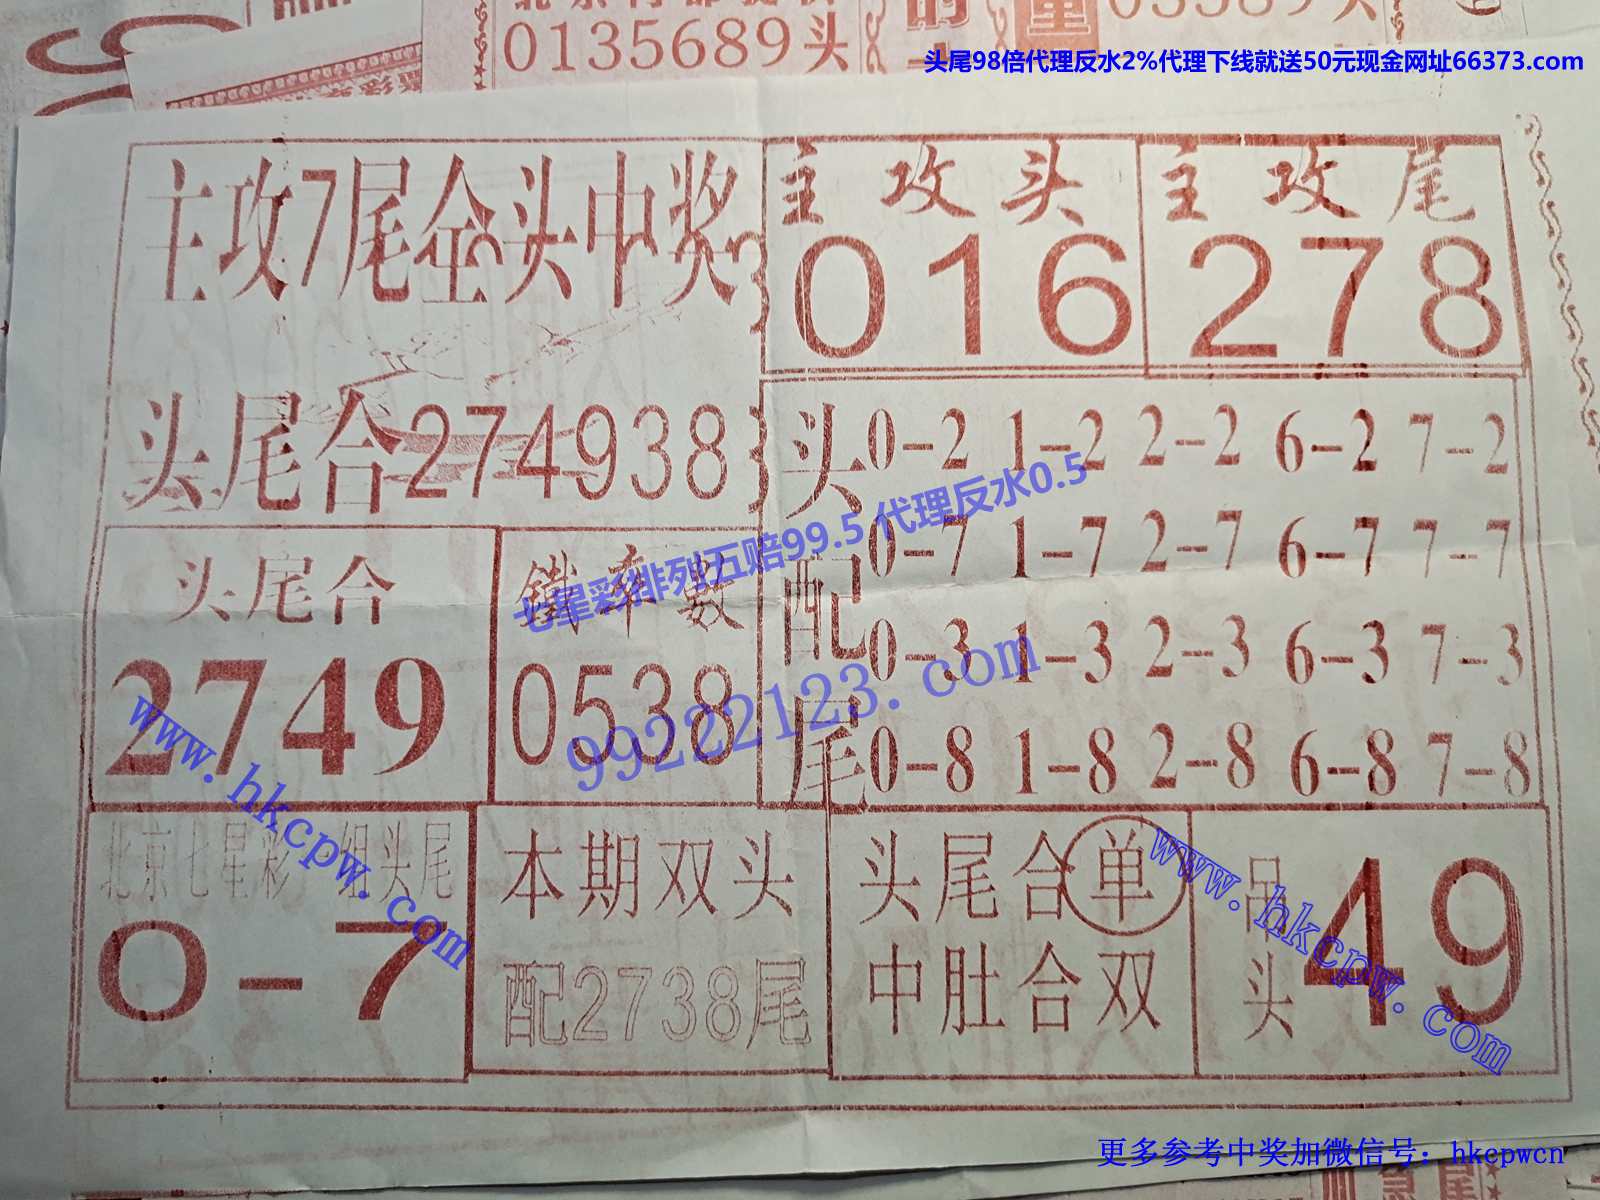 0135689头
头尾98倍代理反水2%代理下线就送50元现金网址66373.com
主攻7尾全头中奖
主攻头
016
主攻尾
278
头尾合274938
头配尾
0-2 1-2 2-2 6-2 7-2
0-7 1-7 2-7 6-7 7-7
0-3 1-3 2-3 6-3 7-3
0-8 1-8 2-8 6-8 7-8
头尾合
2749
鐵率數
0538
七星彩排列五赔99.5 代理反水0.5
99222123.com
www.hkcpw.com
北京七星彩一组头尾
0-7
本期双头
配2738尾
头尾合单
中肚合双
吊头
49
www.hkcpw.com
更多参考中奖加微信号：hkcpwcn